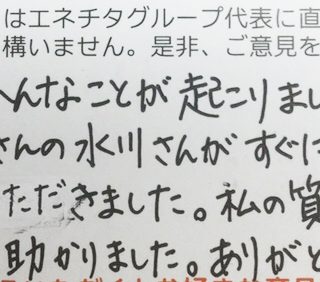 はエネチタグループ代表に直
構いません。是非、ご意見を
んなことが起こりまし
さんの水川さんがすぐに
ただきました。私の質
助かりました。ありがと